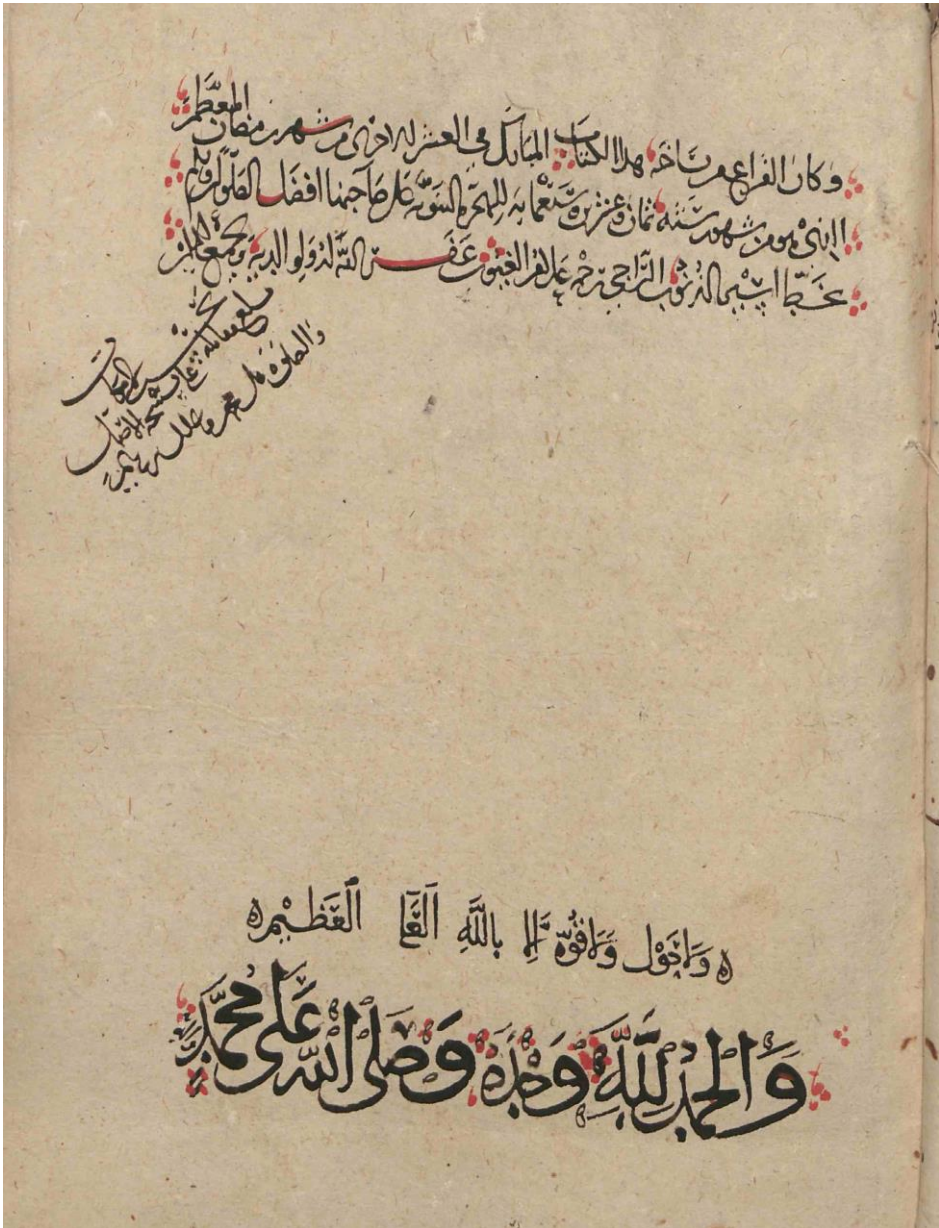 وكان الفراغ من نساخة هذا الكتاب المبارك في العشر الاخرى من شهر رمضان المعظم
الذي هو من شهور سنة ثمان وعشرين وسبعمائه للهجرة النبويه على صاحبها افضل الصلوة والسلم
بخط اسير الذنوب الراجي رحمة علام الغيوب غفر الله له ولوالديه ولجميع المسلمين
والصلوة على محمد واله
ه ولا حول ولا قوة الا بالله العلي العظيم ه
والحمد لله وحده وصلى الله على محمد واله